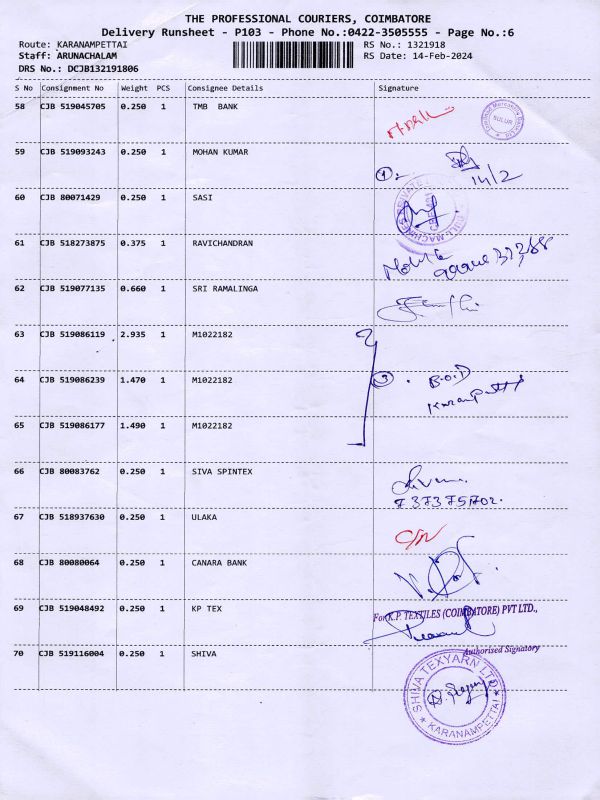 THE PROFESSIONAL COURIERS, COIMBATORE
Delivery Runsheet - P103 - Phone No.:0422-3505555 - Page No.:6
Route: KARANAMPETTAI RS No.: 1321918
Staff: ARUNACHALAM RS Date: 14-Feb-2024
DRS No.: DCJB132191806
S No Consignment No Weight PCS Consignee Details Signature
58 CJB 519045705 0.250 1 TMB BANK
SULUR
59 CJB 519093243 0.250 1 MOHAN KUMAR
1
14/2
60 CJB 80071429 0.250 1 SASI
61 CJB 518273875 0.375 1 RAVICHANDRAN
62 CJB 519077135 0.660 1 SRI RAMALINGA
63 CJB 519086119 2.935 1 M1022182
64 CJB 519086239 1.470 1 M1022182
3 B.O.D
65 CJB 519086177 1.490 1 M1022182
66 CJB 80083762 0.250 1 SIVA SPINTEX
67 CJB 518937630 0.250 1 ULAKA
68 CJB 80080064 0.250 1 CANARA BANK
69 CJB 519048492 0.250 1 KP TEX
For K.P. TEXTILES (COIMBATORE) PVT LTD.,
Authorised Signatory
70 CJB 519116004 0.250 1 SHIVA
SHIVA TEXYARN LTD
KARANAMPETTAI